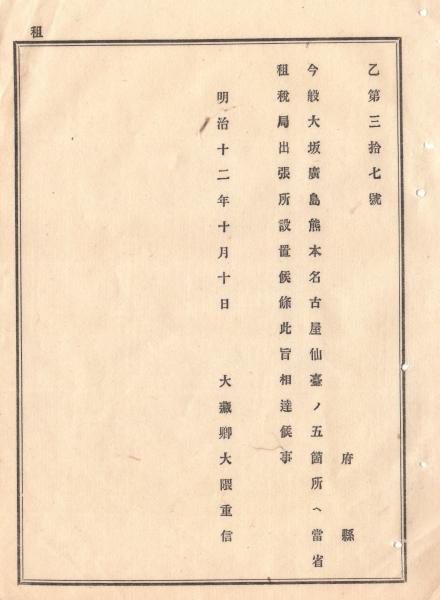 租
乙第三拾七號
府縣
今般大坂廣島熊本名古屋仙臺ノ五箇所ヘ當省
租稅局出張所設置候條此旨相達候事
明治十二年十月十日 大藏卿大隈重信